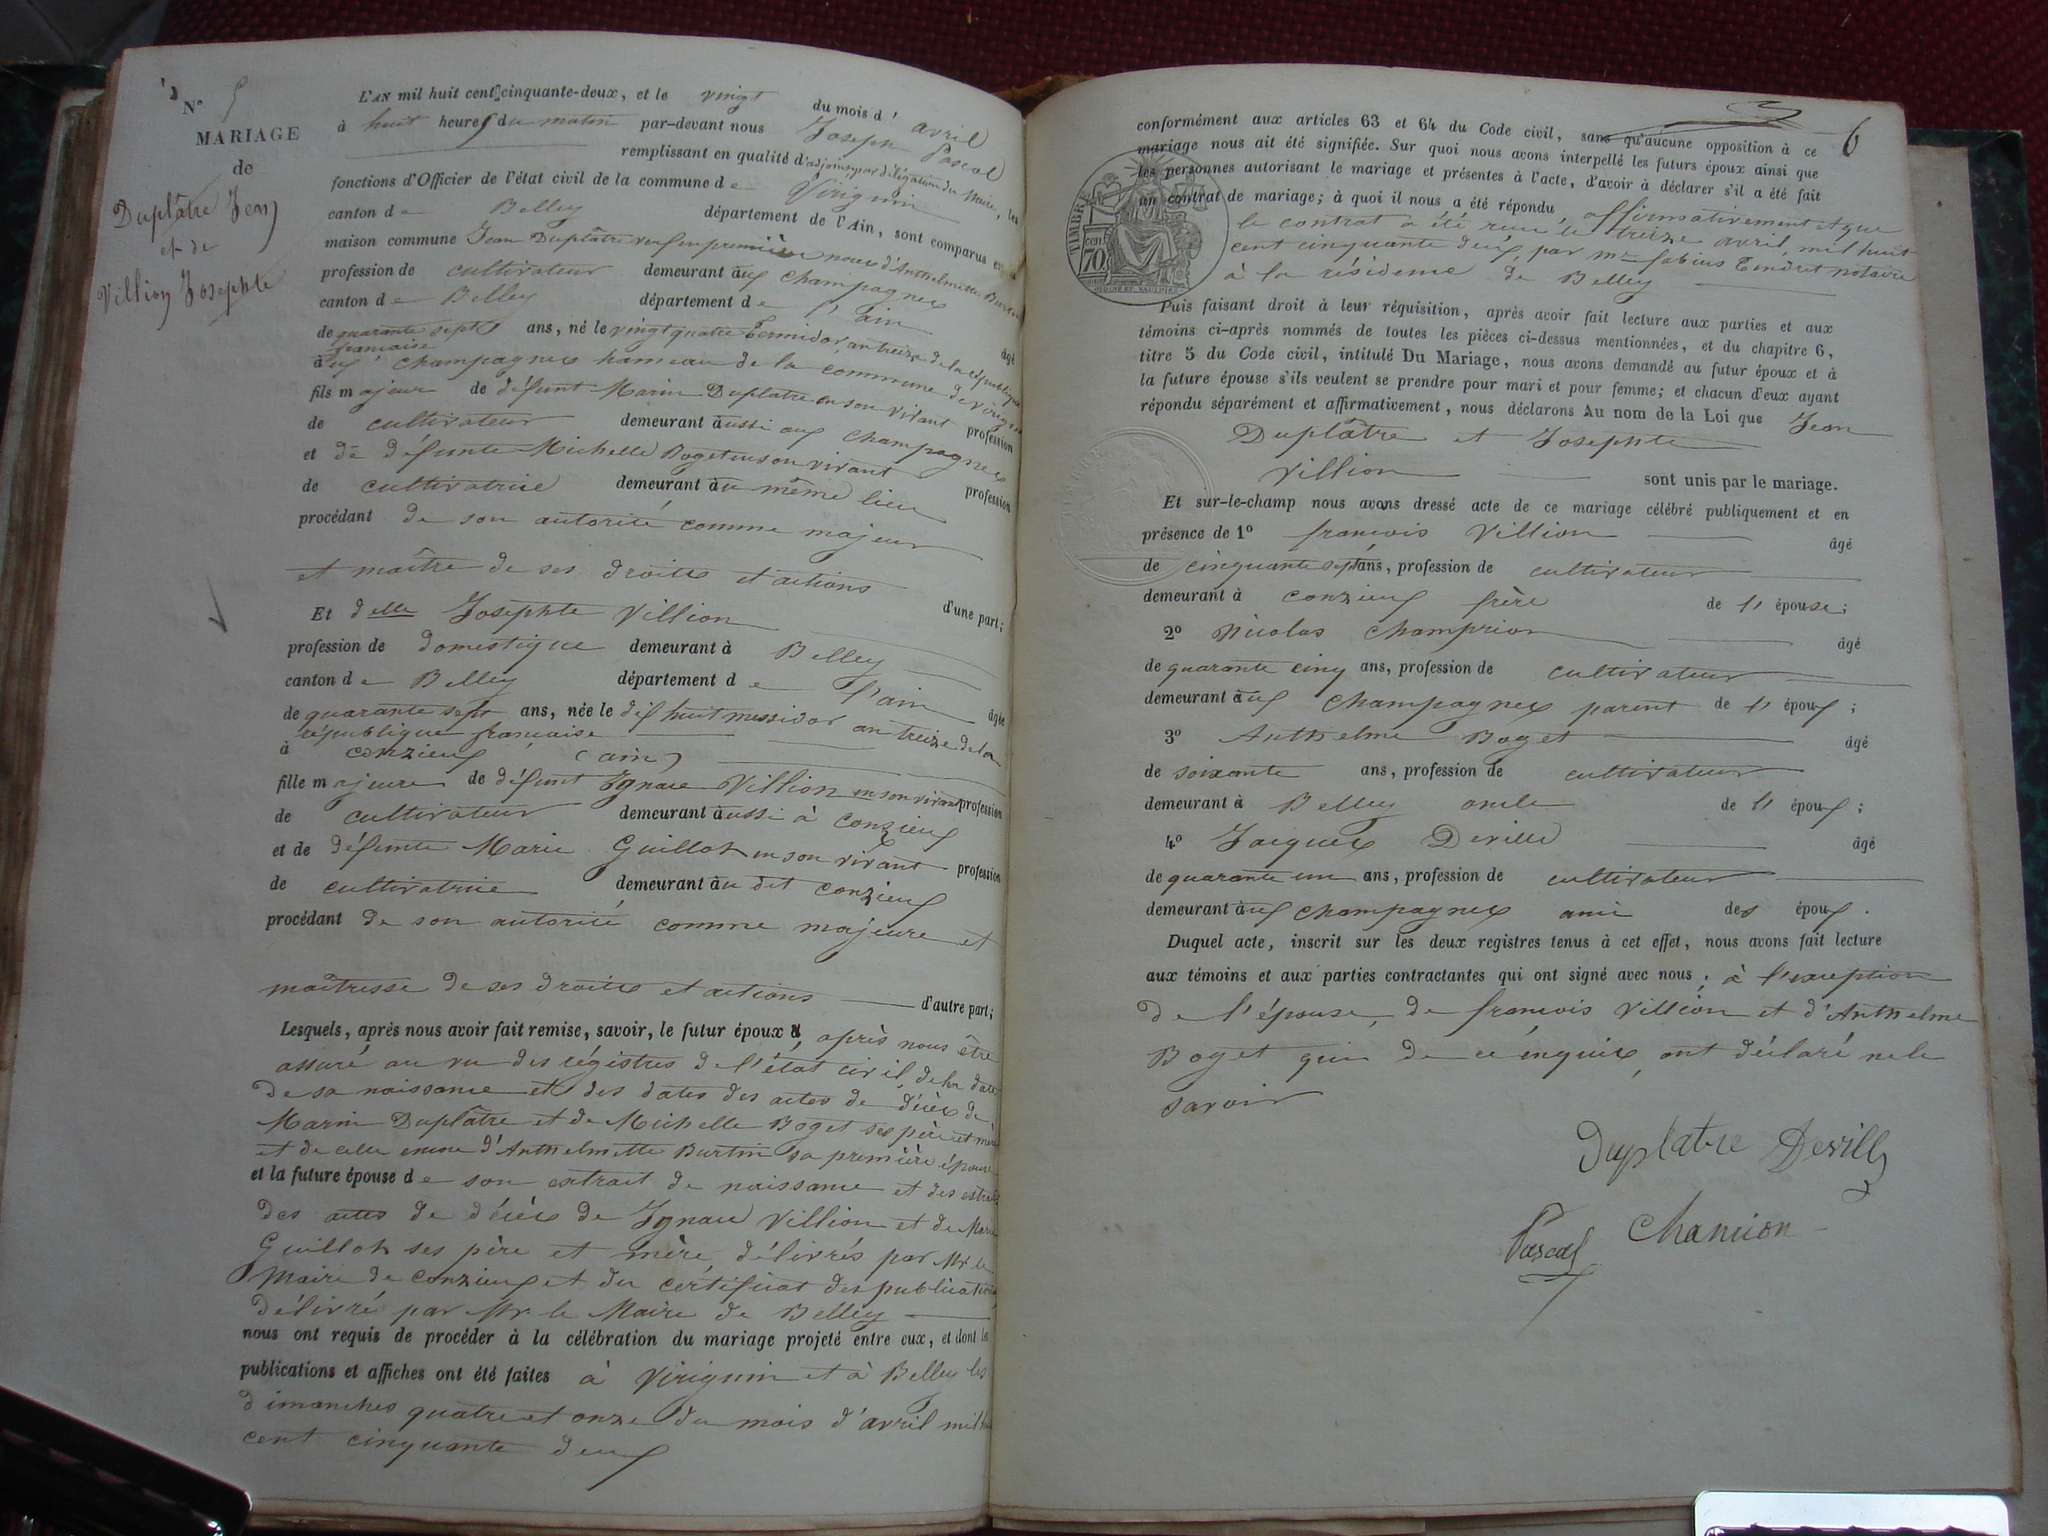 N° 5
MARIAGE
de
Duplâtre Jean
et de
Villion Josephte
L'AN mil huit cent cinquante-deux, et le vingt du mois d'avril
à huit heures du matin par-devant nous Joseph Pascal
remplissant en qualité d'adjoint par délégation du Maire, les
fonctions d'Officier de l'état civil de la commune de Virignin
canton de Belley département de l'Ain, sont comparus en la
maison commune Jean Duplâtre veuf en premières noces d'Anthelmette Burtin
profession de cultivateur demeurant aux Champagnes
canton de Belley département de l'ain âgé
de quarante sept ans, né le vingt quatre Termidor, an treize de la république
française
aux champagnes hameau de la commune de Virignin
fils majeur de défunt Marin Duplatre en son vivant profession
de cultivateur demeurant aussi aux champagnes
et de défunte Michelle Boget en son vivant profession
de cultivatrice demeurant au même lieu
procédant de son autorité comme majeur
et maître de ses droits et actions d'une part;
Et delle Josephte Villion
profession de domestique demeurant à Belley
canton de Belley département de l'ain âgée
de quarante sept ans, née le dix huit messidor an treize de la
république française
à conzieux (ain)
fille majeure de défunt Ignace Villion en son vivant profession
de cultivateur demeurant aussi à conzieux
et de défunte Marie Guillot en son vivant profession
de cultivatrice demeurant au dit conzieux
procédant de son autorité comme majeure et
maîtresse de ses droits et actions d'autre part;
Lesquels, après nous avoir fait remise, savoir, le futur époux, après nous être
assuré au vu des régistres de l'état civil, de la date
de sa naissance et des dates des actes de décès de
Marin Duplâtre et de Michelle Boget ses père et mère
et de celui encore d'Anthelmette Burtin sa première épouse
et la future épouse de son extrait de naissance et des extraits
des actes de décès de Ignace Villion et de Marie
Guillot ses père et mère, délivrés par Mr le
Maire de conzieux et du certificat des publications
délivré par Mr le Maire de Belley
nous ont requis de procéder à la célébration du mariage projeté entre eux, et dont les
publications et affiches ont été faites à Virignin et à Belley les
dimanches quatre et onze du mois d'avril mil huit
cent cinquante deux
6
conformément aux articles 63 et 64 du Code civil, sans qu'aucune opposition à ce
mariage nous ait été signifiée. Sur quoi nous avons interpellé les futurs époux ainsi que
les personnes autorisant le mariage et présentes à l'acte, d'avoir à déclarer s'il a été fait
un contrat de mariage; à quoi il nous a été répondu, affirmativement et que
le contrat a été reçu le treize avril, mil huit
cent cinquante deux, par mre fabius Tendret notaire
à la résidence de Belley
TIMBRE
70 cen
Puis faisant droit à leur réquisition, après avoir fait lecture aux parties et aux
témoins ci-après nommés de toutes les pièces ci-dessus mentionnées, et du chapitre 6,
titre 5 du Code civil, intitulé Du Mariage, nous avons demandé au futur époux et à
la future épouse s'ils veulent se prendre pour mari et pour femme; et chacun d'eux ayant
répondu séparément et affirmativement, nous déclarons Au nom de la Loi que Jean
Duplâtre et Josephte
Villion sont unis par le mariage.
Et sur-le-champ nous avons dressé acte de ce mariage célébré publiquement et en
présence de 1° françois Villion âgé
de cinquante sept ans, profession de cultivateur
demeurant à conzieux frère de l'épouse;
2° Nicolas Champrion âgé
de quarante cinq ans, profession de cultivateur
demeurant aux champagnes parent de l'époux;
3° Anthelme Boget âgé
de soixante ans, profession de cultivateur
demeurant à Belley oncle de l'époux;
4° Jacques Deville âgé
de quarante un ans, profession de cultivateur
demeurant aux champagnes ami des époux.
Duquel acte, inscrit sur les deux registres tenus à cet effet, nous avons fait lecture
aux témoins et aux parties contractantes qui ont signé avec nous; à l'exception
de l'épouse, de françois Villion et d'Anthelme
Boget qui de ce enquis, ont déclaré ne le
savoir
Duplatre Devill
Pascal Chanrion